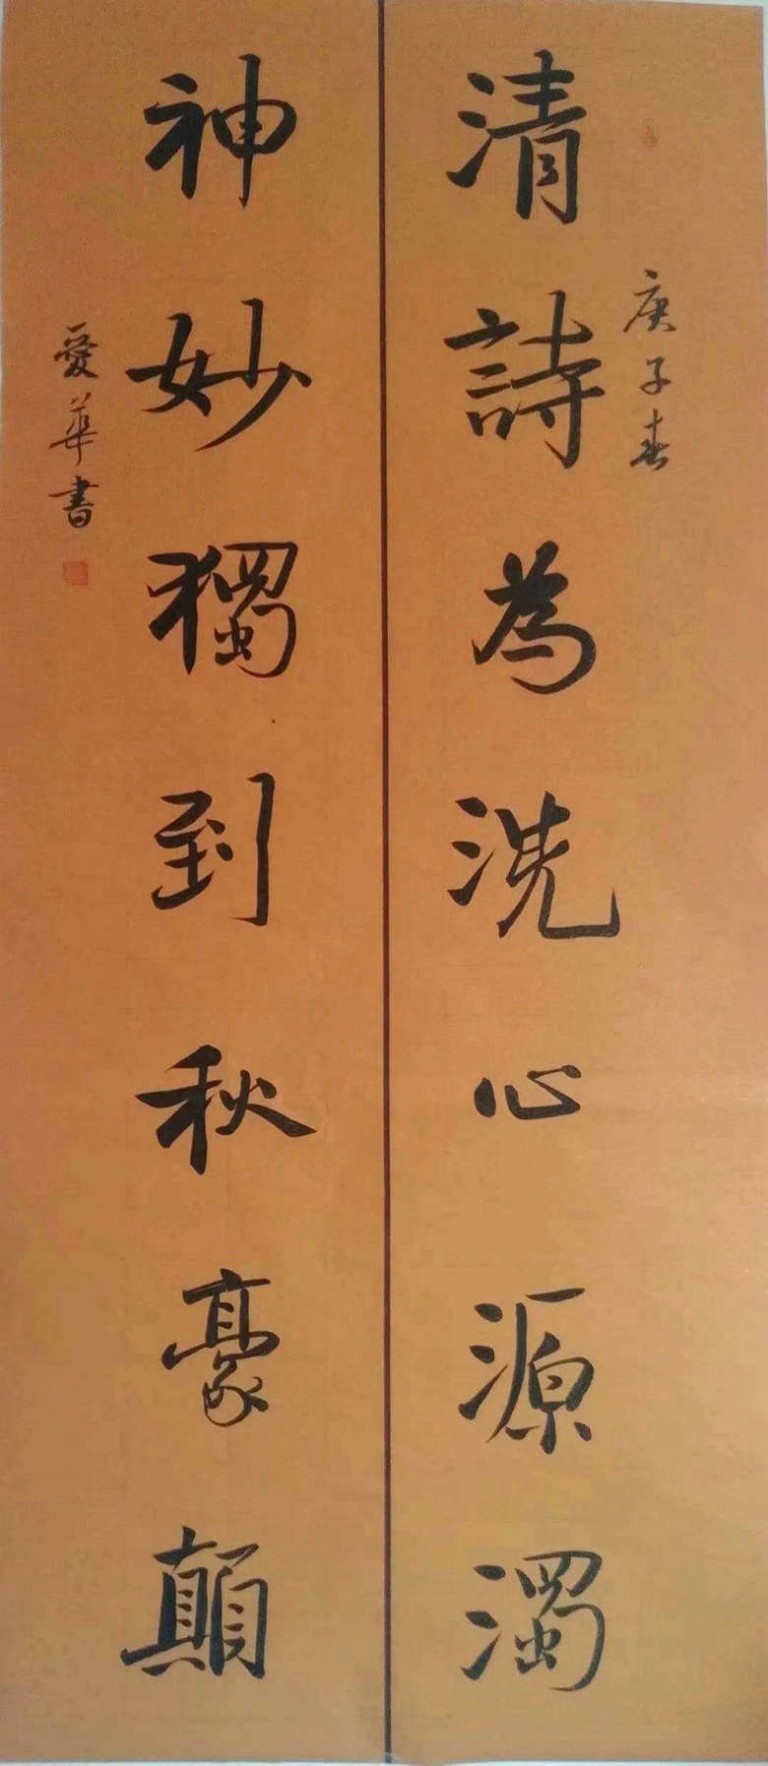 庚子春
清詩為洗心源濁
神妙獨到秋豪顛
愛華書